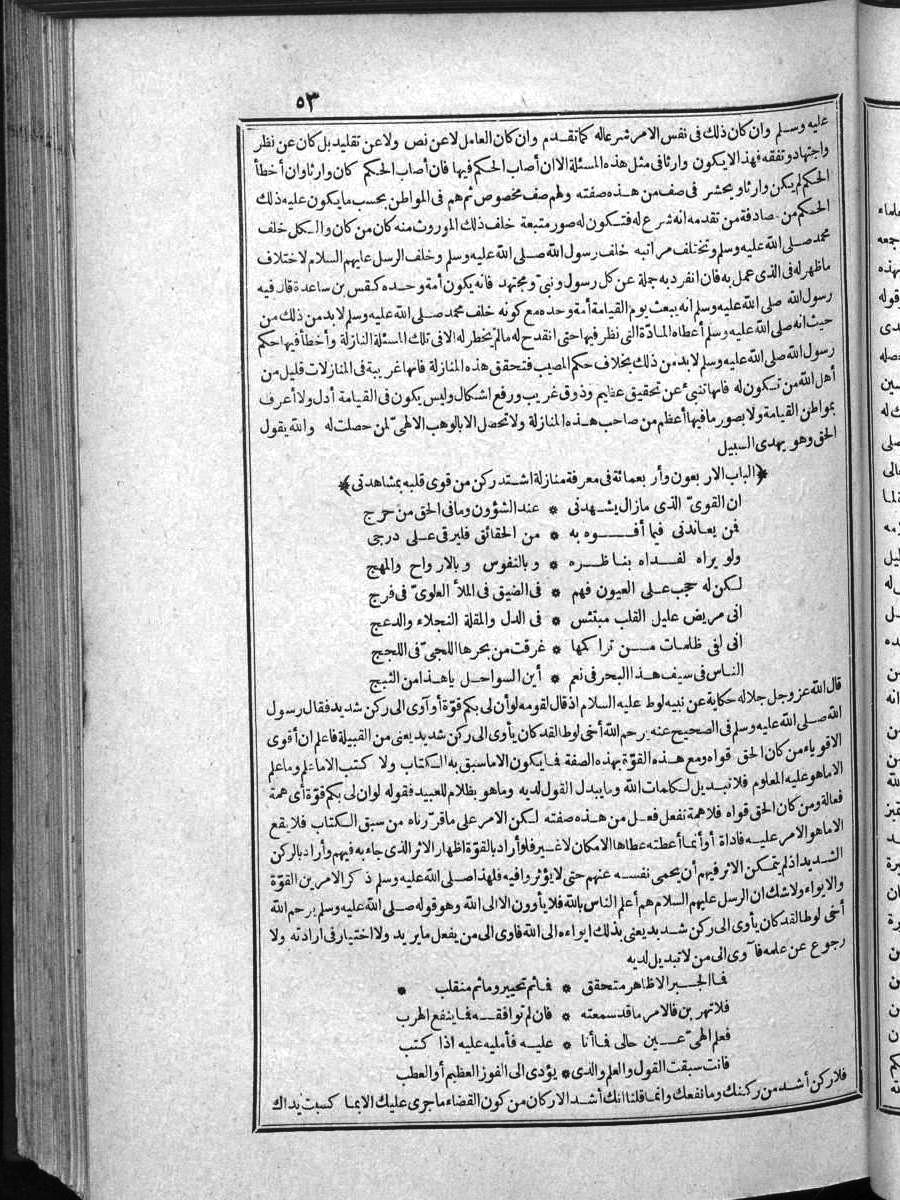 ٥٣
عليه وسلم وان كان ذلك فى نفس الامر شرعاله كماتقدم وان كان العامل لاعن نص ولاعن تقليد بل كان عن نظر
واجتهاد وتفقه فهذا لايكون وارثا فى مثل هذه المسئلة الاان أصاب الحكم فيها فان أصاب الحكم كان وارثا وان أخطأ
الحكم لم يكن وارثا ويحشر فى صف من هذه صفته ولهم صف مخصوص ثم هم فى المواطن بحسب ما يكون عليه ذلك
الحكم من صادفة من تقدمه انه شرع له فتكون له صور متبعة خلف ذلك الموروث منه كان من كان والكل خلف
محمد صلى الله عليه وسلم وتختلف مراتبه خلف رسول الله صلى الله عليه وسلم وخلف الرسل عليهم السلام لاختلاف
ماظهر له فى الذى عمل به فان انفرد به جملة عن كل رسول ونبى ومجتهد فانه يكون أمة وحده كقس بن ساعدة قال فيه
رسول الله صلى الله عليه وسلم انه يبعث يوم القيامة أمة وحده مع كونه خلف محمد صلى الله عليه وسلم لابد من ذلك من
حيث انه صلى الله عليه وسلم أعطاه المادّة التى نظر فيها حتى انقدح له مالم يخطر له الافى تلك المسئلة النازلة وأخطأ فيها حكم
رسول الله صلى الله عليه وسلم لابد من ذلك بخلاف حكم المصيب فتحقق هذه المنازلة فانها غريبة فى المنازلات قليل من
أهل الله من تكون له فانها تنبئ عن تحقيق عظيم وذوق غريب ورفع اشكال وليس يكون فى القيامة أدل ولا أعرف
بمواطن القيامة ولا بصور مافيها أعظم من صاحب هذه المنازلة ولا تحصل الا بالوهب الالهىّ لمن حصلت له والله يقول
الحق وهو يهدى السبيل
﴿الباب الاربعون وأربعمائة فى معرفة منازلة اشتد ركن من قوى قلبه بمشاهدتى﴾
ان القوىّ الذى مازال يشهدنى * عند الشؤون ومافى الحق من حرج
فمن يعاندنى فيما أفوه به * من الحقائق فليرقى على درجى
ولو يراه لفداه بناظره * وبالنفوس وبالارواح والمهج
لكن له حجب على العيون فهم * فى الضيق فى الملأ العلوىّ فى فرج
انى مريض عليل القلب مبتئس * فى الدل والمقلة النجلاء والدعج
انى لفى ظلمات من تراكمها * غرقت من بحرها اللجىّ فى اللجج
الناس فى سيف هذا البحر فى نعم * أين السواحل ياهذا من الثبج
قال الله عز وجل جلاله حكاية عن نبيه لوط عليه السلام اذ قال لقومه لو أن لى بكم قوّة أو آوى الى ركن شديد فقال رسول
الله صلى الله عليه وسلم فى الصحيح عنه يرحم الله أخى لوطا لقد كان يأوى الى ركن شديد يعنى من القبيلة فاعلم ان أقوى
الاقوياء من كان الحق قواه ومع هذه القوّة بهذه الصفة فما يكون الا ماسبق به الكتاب ولا كتب الا ماعلم وماعلم
الاماهو عليه المعلوم فلا تبديل لكلمات الله ومايبدل القول لديه وماهو بظلام للعبيد فقوله لو ان لى بكم قوّة أى همة
فعالة ومن كان الحق قواه فلا همة تفعل فعل من هذه صفته لكن الامر على ماقرّرناه من سبق الكتاب فلا يقع
الاماهو الامر عليه فاداة أو أنما أعطته عطاها الامكان لاغير فلو أراد بالقوّة اظهار الاثر الذى جاء به فيهم وأراد بالركن
الشديد اذ لم يتمكن الاثر فيهم أن يحمى نفسه عنهم حتى لايؤثروا فيه فلهذا صلى الله عليه وسلم ذكر الامرين القوّة
والايواء ولاشك ان الرسل عليهم السلام هم أعلم الناس بالله فلا يأوون الا الى الله وهو قوله صلى الله عليه وسلم يرحم الله
أخى لوطا لقد كان يأوى الى ركن شديد يعنى بذلك ايواءه الى الله فاوى الى من يفعل ما يريد ولا اختيار فى ارادته ولا
رجوع عن علمه فآوى الى من لا تبديل لديه
فما الجبر الا ظاهر متحقق * فما ثم تحيير وما ثم منقلب *
فلا تهربن فالامر ما قد سمعته * فان لم توافقه فما ينفع الهرب
فعلم الهى عين حالى فما أنا * عليه فأمليه عليه اذا كتب
فانت سبقت القول والعلم والذى * يؤدى الى الفوز العظيم أو العطب
فلا ركن أشد من ركنك وما نفعك وانما قلنا انك أشد الاركان من كون القضاء ماجرى عليك الا بما كسبت يداك